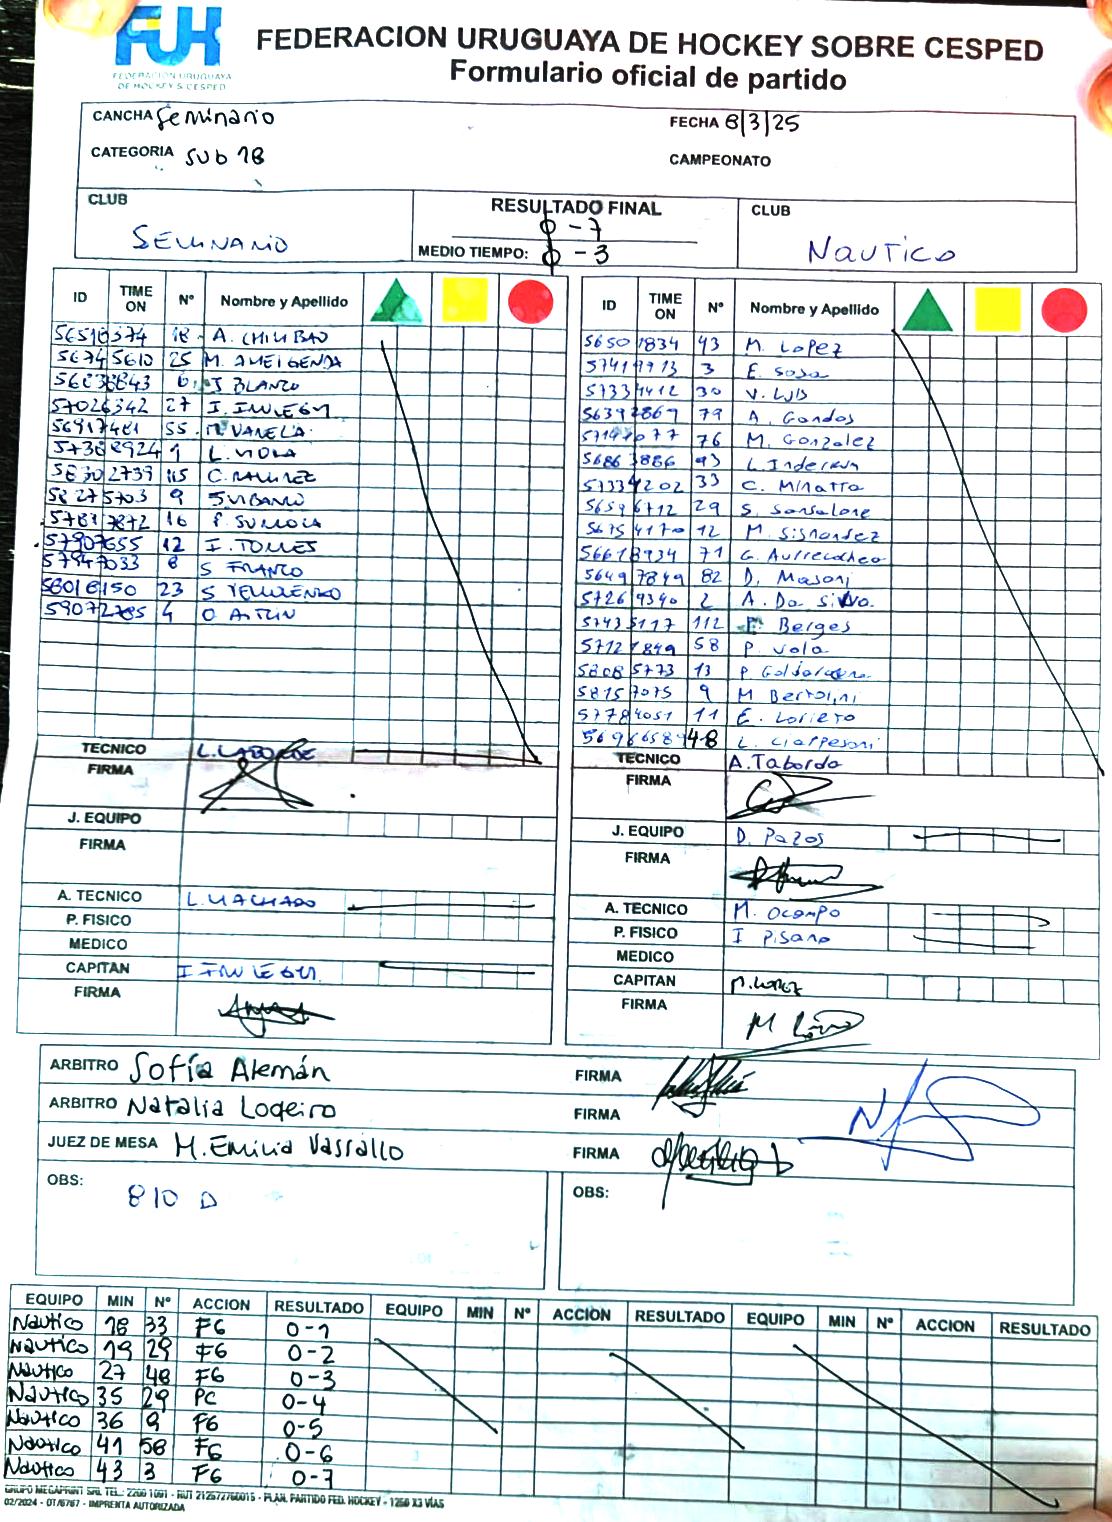 FUH
FEDERACIÓN URUGUAYA
DE HOCKEY S CESPED
FEDERACION URUGUAYA DE HOCKEY SOBRE CESPED
Formulario oficial de partido
CANCHA Seminario
FECHA 8/3/25
CATEGORIA SUB 18
CAMPEONATO
CLUB
SEMINARIO
RESULTADO FINAL
0 - 7
MEDIO TIEMPO: 0 - 3
CLUB
NAUTICO
ID TIME ON Nº Nombre y Apellido
18 A. CHIMBAO
5674 5610 25 M. AMEIGENDA
6 J BLANCO
57026342 27
56917481 55 M. VARELA
1 L. VIOLA
58302739 115 C. RAMIREZ
58275703 9
16
57907655 12 I. TORRES
57947033 8 S FRANCO
23 S
59072785 4
TECNICO L. LABORDE
FIRMA
J. EQUIPO
FIRMA
A. TECNICO L. MACHADO
P. FISICO
MEDICO
CAPITAN
FIRMA
ID TIME ON Nº Nombre y Apellido
5650 1834 M. Lopez
3 E. Sosa
5733 4412 30 V. Luis
79 A. Gandos
76 M. Gonzalez
5686 3886 93
5733 4202 33 C. Minatta
5659 6712 29 S. Sansalone
5675 4170 12
5661 8934 71
5649 7849 82 D. Masoni
5726 9340 2 A. Da Silva
5743 5117 112 Berges
5712 1849 58 P. Viola
5808 5773 13
5815 7075 9 M Bertolini
5778 4051 11 E. Lorieto
48
TECNICO A. Taborda
FIRMA
J. EQUIPO D. Pazos
FIRMA
A. TECNICO M. Ocampo
P. FISICO I Pisano
MEDICO
CAPITAN M. LOPEZ
FIRMA
ARBITRO Sofía Alemán FIRMA
ARBITRO Natalia Loqeiro FIRMA
JUEZ DE MESA M. Emilia Vassallo FIRMA
OBS: 810 D
OBS:
EQUIPO MIN Nº ACCION RESULTADO EQUIPO MIN Nº ACCION RESULTADO EQUIPO MIN Nº ACCION RESULTADO
Nautico 18 33 FG 0-1
Nautico 19 29 FG 0-2
Nautico 27 48 FG 0-3
Nautico 35 29 PC 0-4
Nautico 36 9 FG 0-5
Nautico 41 58 FG 0-6
Nautico 43 3 FG 0-7
GRUPO MEGAPRINT SRL TEL.: 2200 1091 - RUT 212572760015 - PLAN. PARTIDO FED. HOCKEY - 1250 X3 VÍAS
02/2024 - OT/6767 - IMPRENTA AUTORIZADA